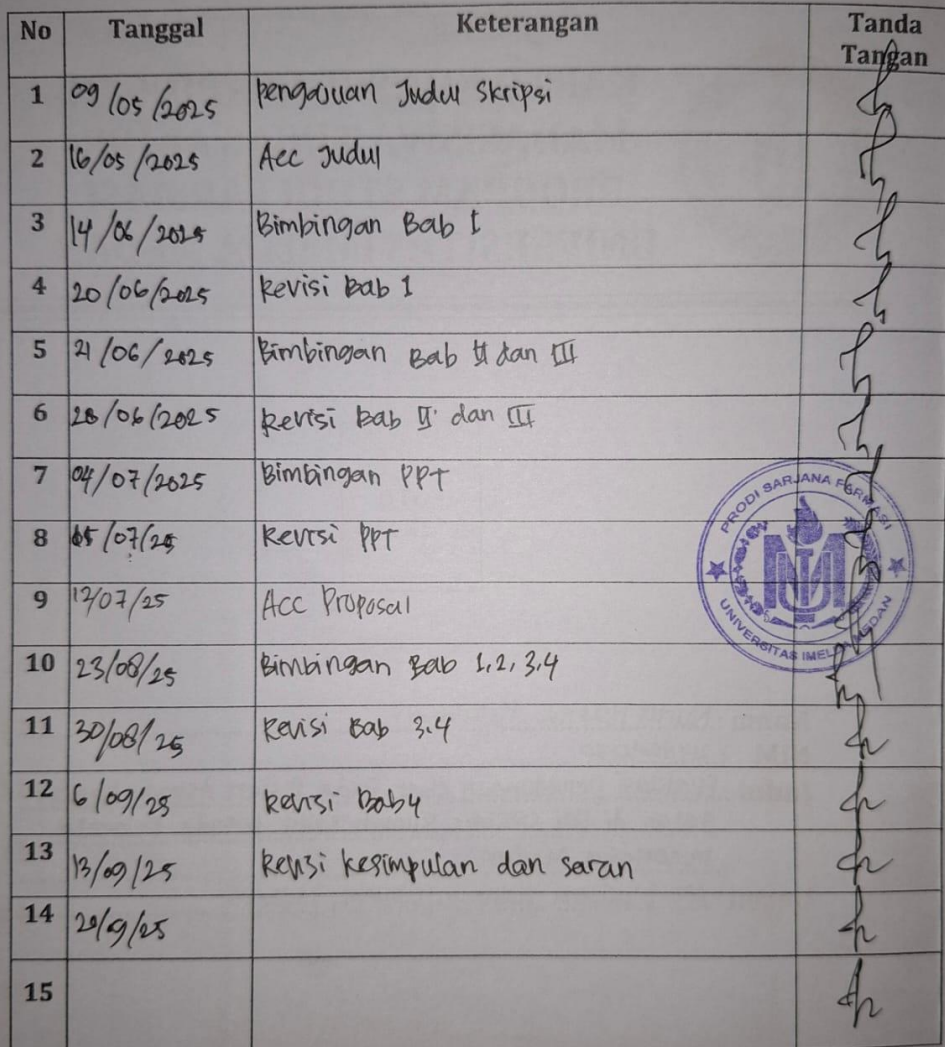 No Tanggal Keterangan Tanda Tangan
1 09/05/2025 Pengajuan Judul Skripsi
2 16/05/2025 Acc Judul
3 14/06/2025 Bimbingan Bab I
4 20/06/2025 Revisi Bab 1
5 21/06/2025 Bimbingan Bab II dan III
6 28/06/2025 Revisi Bab II dan III
7 04/07/2025 Bimbingan PPT
8 05/07/25 Revisi PPT
9 12/07/25 Acc Proposal
10 23/08/25 Bimbingan Bab 1,2,3,4
11 30/08/25 Revisi Bab 3.4
12 6/09/25 Revisi Bab 4
13 13/09/25 Revisi kesimpulan dan saran
14 20/9/25
15
PRODI SARJANA FARMASI
UNIVERSITAS IMELDA MEDAN